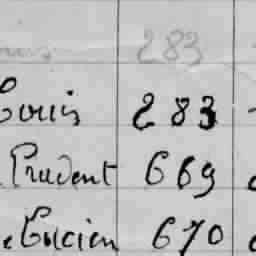 283
Louis 283
Prudent 669
Lucien 670